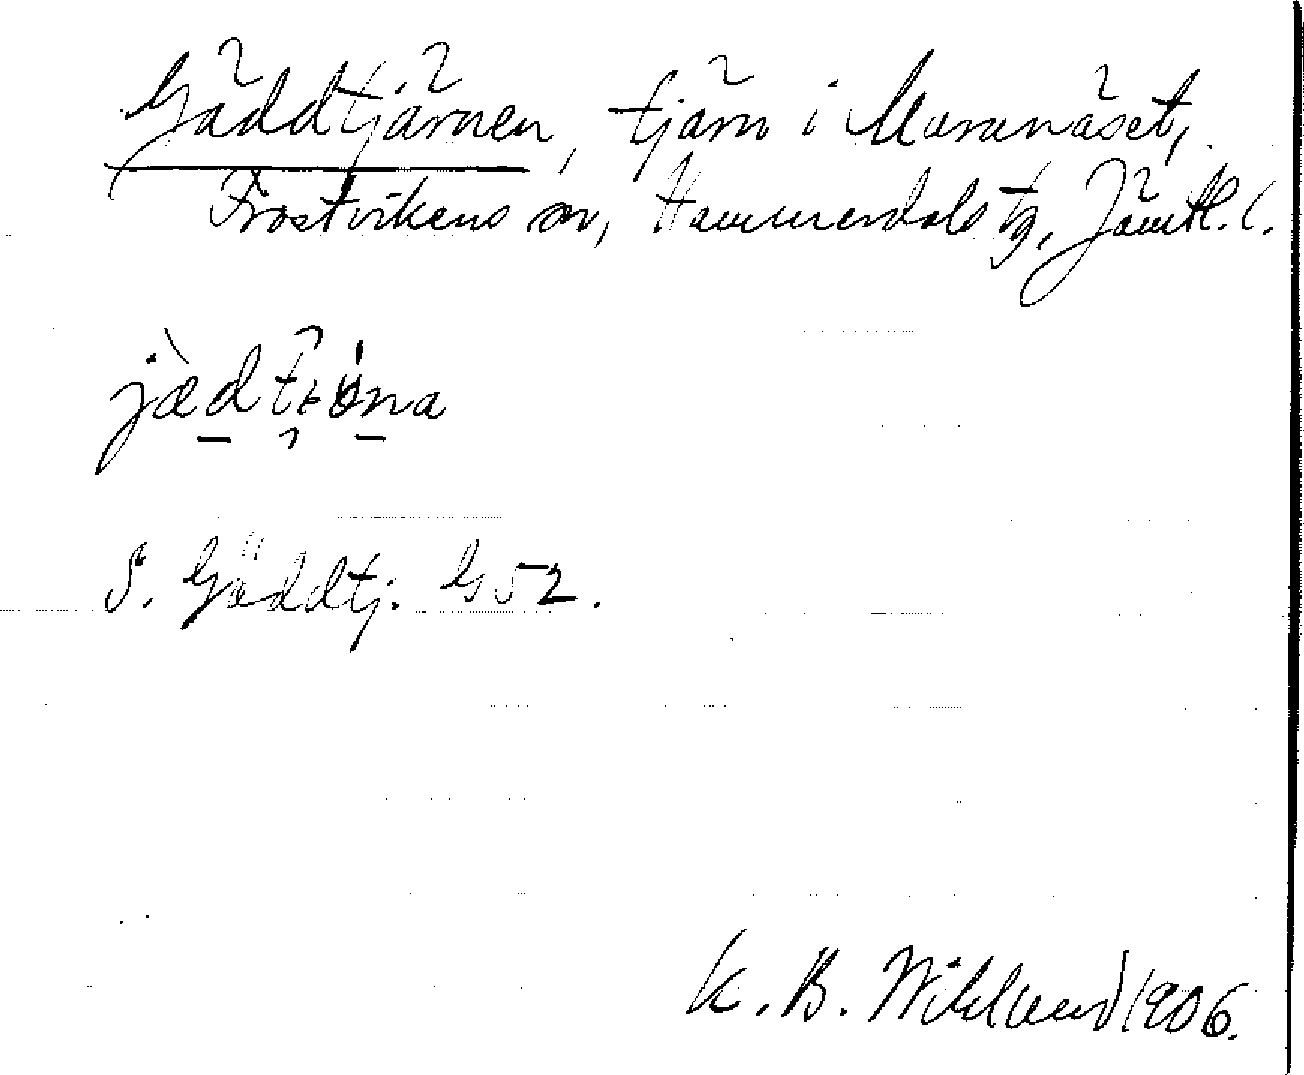 Gäddtjärnen, tjärn i Murunäset,
Frostvikens sn, Hammerdals tg, Jämtl. l.
S. Gäddtj. G 52.
K. B. Wiklund 1906.